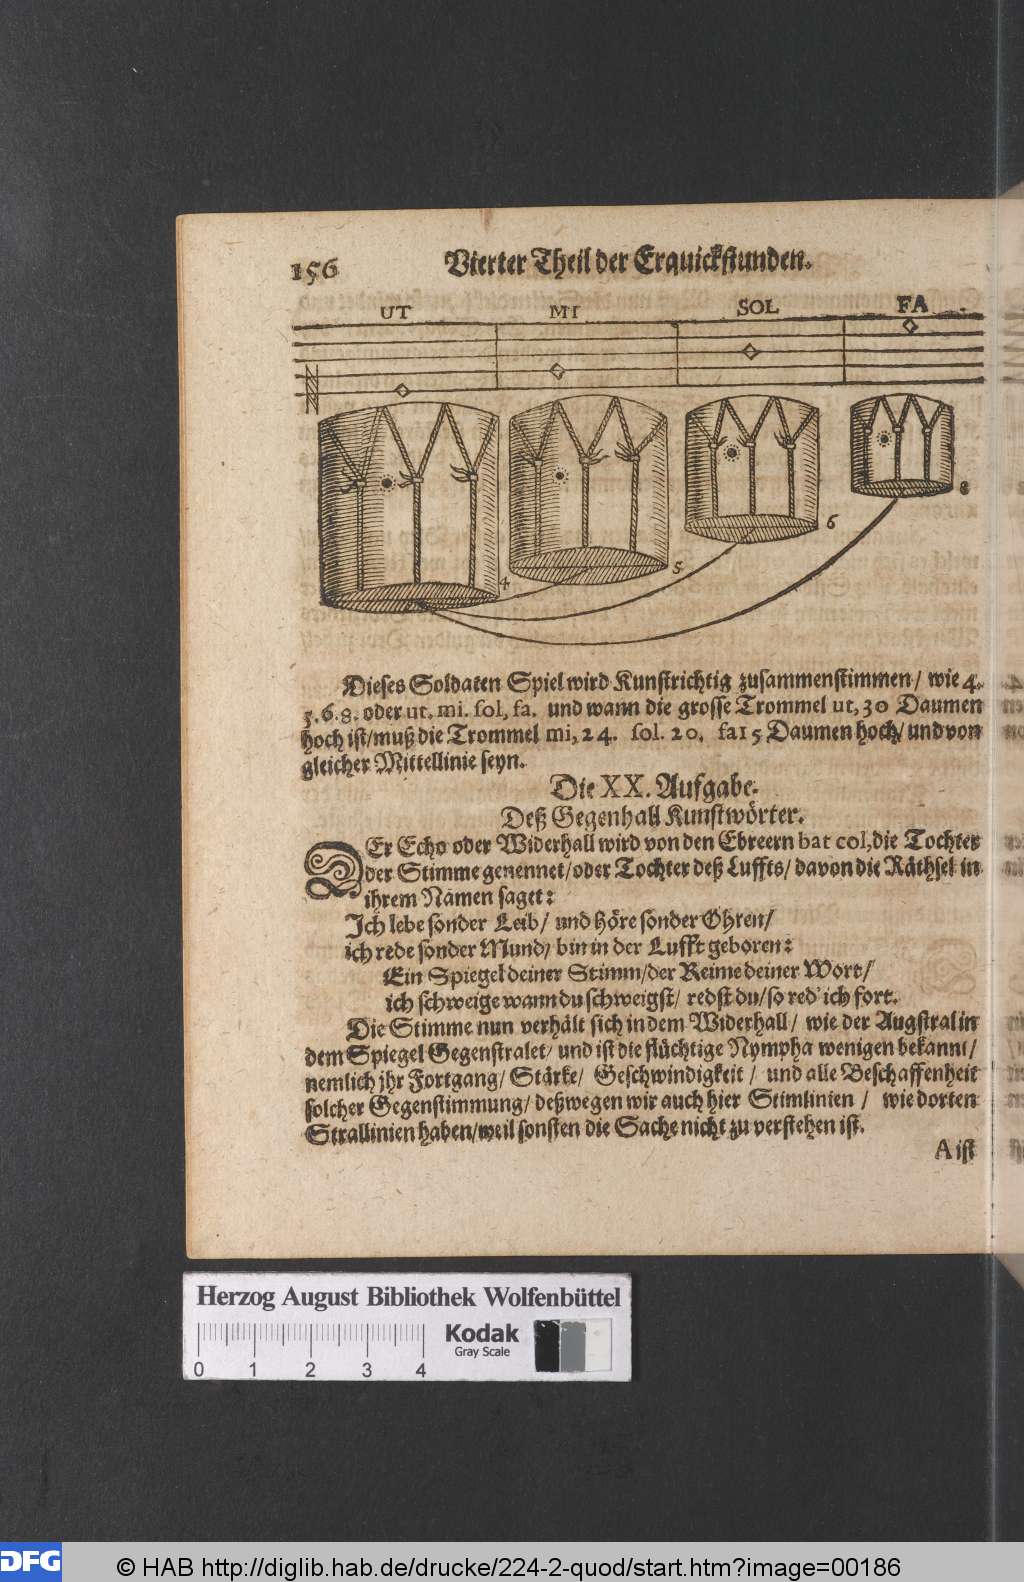 156 Vierter Theil der Erquickstunden.
UT MI SOL FA
4 5 6 8
Dieses Soldaten Spiel wird Kunstrichtig zusammenstimmen / wie 4.
5.6.8. oder ut. mi. sol, fa. und wann die grosse Trommel ut, 30 Daumen
hoch ist/muß die Trommel mi, 24. sol. 20. fa 15 Daumen hoch/ und von
gleicher Mittellinie seyn.
Die XX. Aufgabe.
Deß Gegenhall Kunstwörter.
DEr Echo oder Widerhall wird von den Ebreern bat col, die Tochter
der Stimme genennet/oder Tochter deß Luffts/ davon die Räthsel in
ihrem Namen saget:
Ich lebe sonder Leib/ und höre sonder Ohren/
ich rede sonder Mund/ bin in der Lufft geboren:
Ein Spiegel deiner Stimm/der Reime deiner Wort/
ich schweige wann du schweigst/ redst du/so red' ich fort.
Die Stimme nun verhält sich in dem Widerhall/ wie der Augstral in
dem Spiegel Gegenstralet/ und ist die flüchtige Nympha wenigen bekannt/
nemlich jhr Fortgang/ Stärke/ Geschwindigkeit / und alle Beschaffenheit
solcher Gegenstimmung/ deßwegen wir auch hier Stimlinien / wie dorten
Strallinien haben/weil sonsten die Sache nicht zu verstehen ist.
A ist
Herzog August Bibliothek Wolfenbüttel
Kodak
Gray Scale
0 1 2 3 4
DFG © HAB http://diglib.hab.de/drucke/224-2-quod/start.htm?image=00186